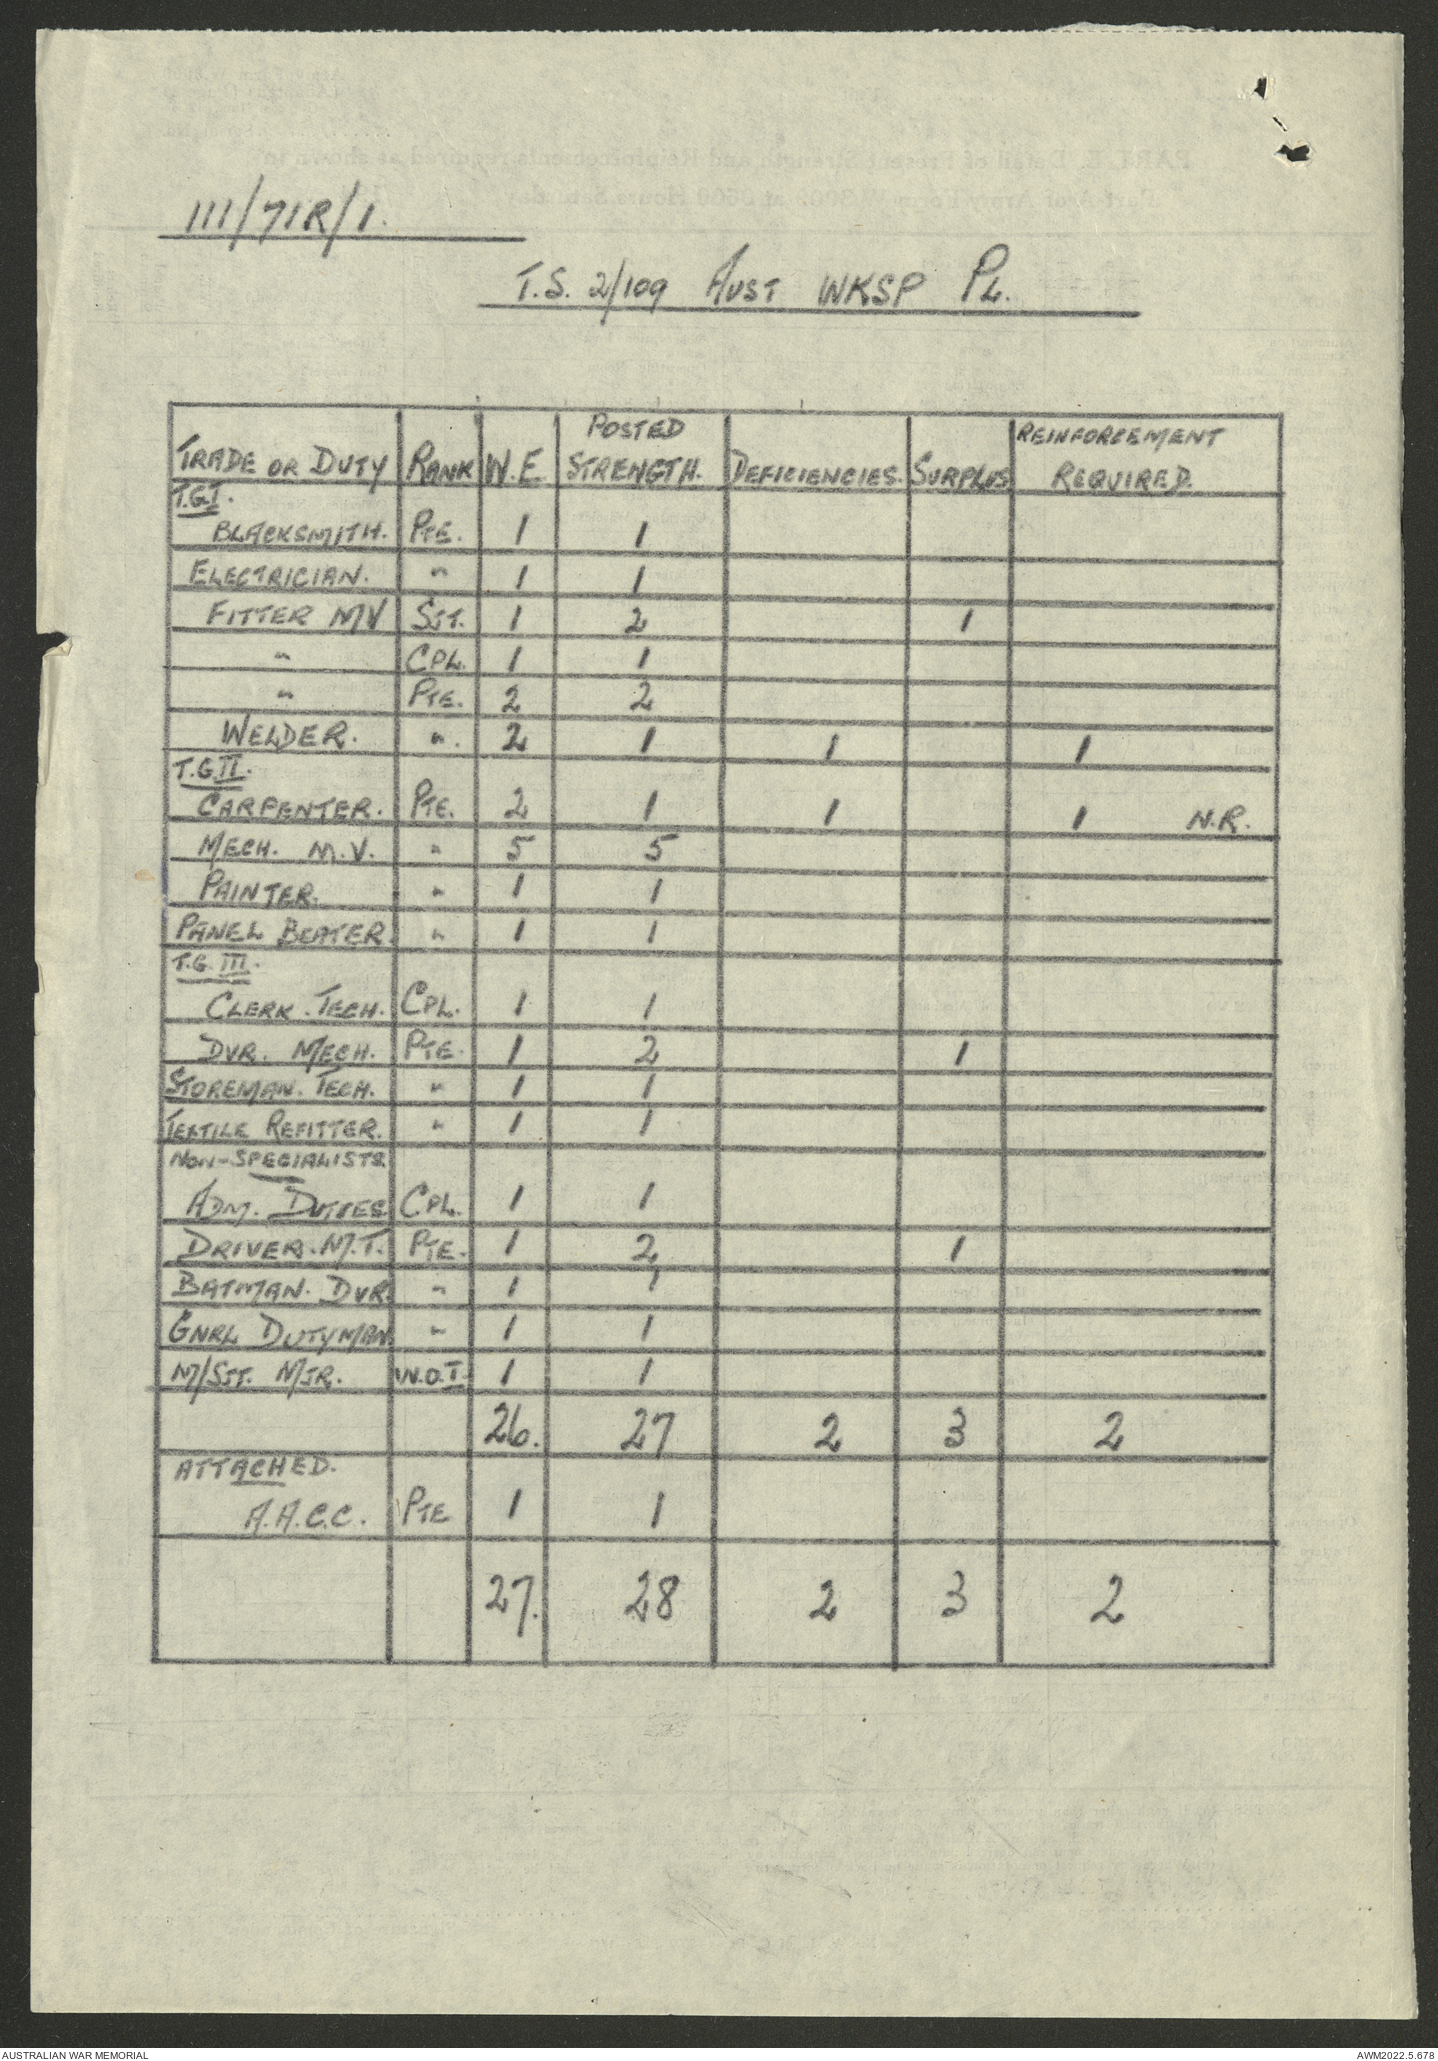 111/71R/1.
T.S. 2/109 AUST WKSP PL.
TRADE OR DUTY RANK W.E. POSTED STRENGTH. DEFICIENCIES. SURPLUS REINFORCEMENT REQUIRED.
T.G.I.
BLACKSMITH. PTE. 1 1
ELECTRICIAN. " 1 1
FITTER MV SJT. 1 2 1
" CPL. 1 1
" PTE. 2 2
WELDER. ". 2 1 1 1
T.G.II.
CARPENTER. PTE. 2 1 1 1 N.R.
MECH. M.V. " 5 5
PAINTER. " 1 1
PANEL BEATER. " 1 1
T.G. III.
CLERK. TECH. CPL. 1 1
DVR. MECH. PTE. 1 2 1
STOREMAN. TECH. " 1 1
TEXTILE REFITTER. " 1 1
NON-SPECIALISTS.
ADM. DUTIES CPL. 1 1
DRIVER. M.T. PTE. 1 2 1
BATMAN. DVR. " 1 1
GNRL DUTYMAN. " 1 1
M/SJT. MJR. W.O.I. 1 1
26. 27 2 3 2
ATTACHED.
A.A.C.C. PTE 1 1
27. 28 2 3 2
AUSTRALIAN WAR MEMORIAL AWM2022.5.678